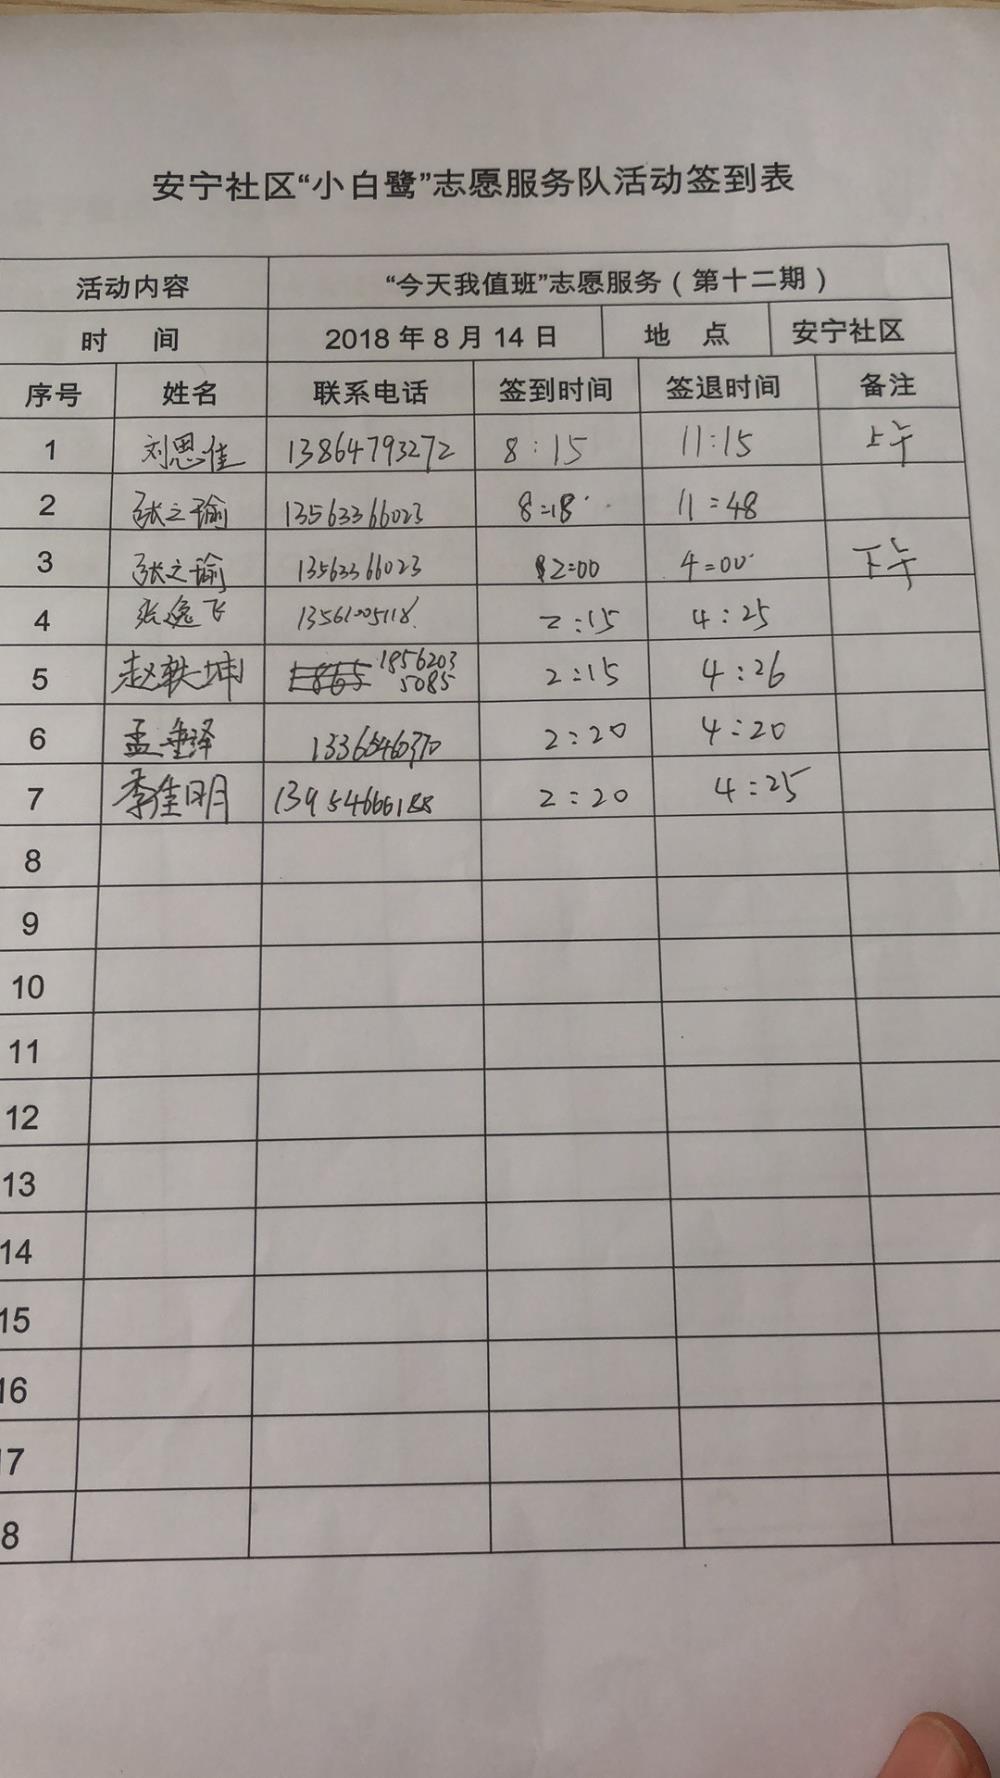 安宁社区“小白鹭”志愿服务队活动签到表
活动内容 “今天我值班”志愿服务（第十二期）
时 间 2018年8月14日 地 点 安宁社区
序号 姓名 联系电话 签到时间 签退时间 备注
1 刘思佳 13864793272 8:15 11:15 上午
2 张之瑜 13563366023 8:18 11:48
3 张之瑜 13563366023 2:00 4:00 下午
4 张逸飞 13561005118 2:15 4:25
5 赵轶坤 18562035085 2:15 4:26
6 孟垂泽 2:20 4:20
7 李佳明 13954666188 2:20 4:25
8
9
10
11
12
13
14
15
16
17
8